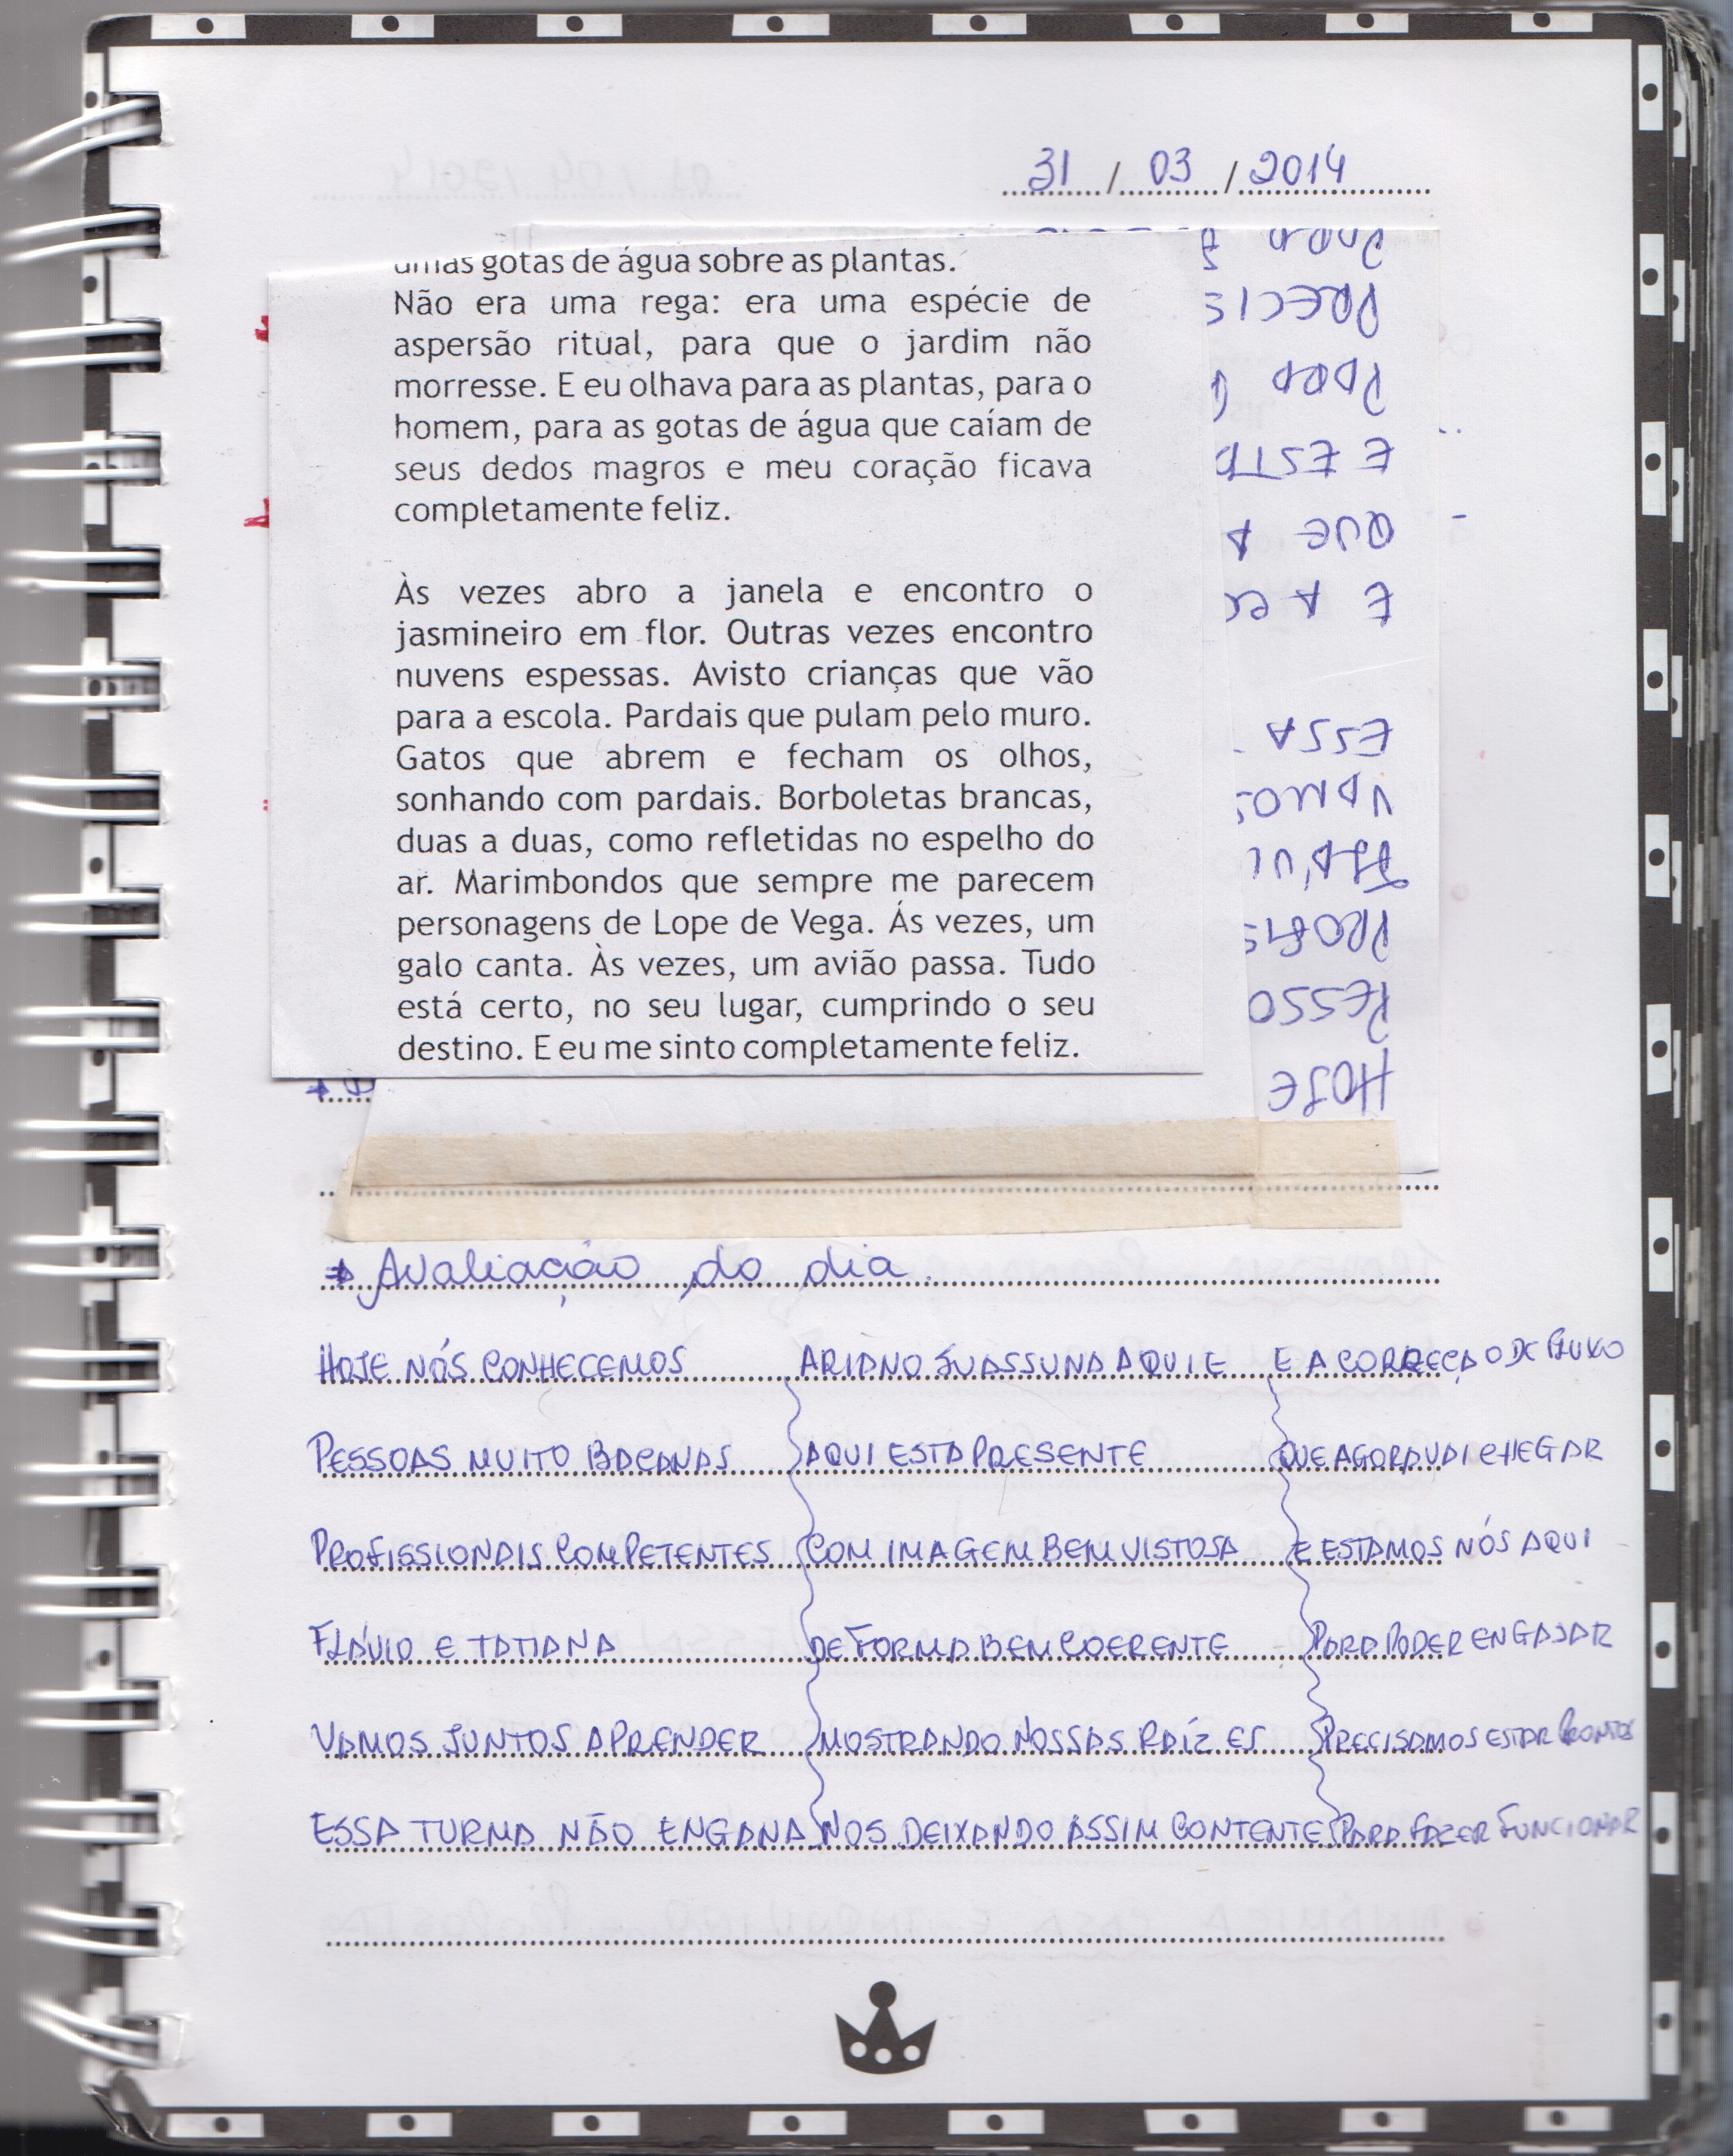 31 / 03 / 2014
umas gotas de água sobre as plantas.
Não era uma rega: era uma espécie de
aspersão ritual, para que o jardim não
morresse. E eu olhava para as plantas, para o
homem, para as gotas de água que caíam de
seus dedos magros e meu coração ficava
completamente feliz.
Às vezes abro a janela e encontro o
jasmineiro em flor. Outras vezes encontro
nuvens espessas. Avisto crianças que vão
para a escola. Pardais que pulam pelo muro.
Gatos que abrem e fecham os olhos,
sonhando com pardais. Borboletas brancas,
duas a duas, como refletidas no espelho do
ar. Marimbondos que sempre me parecem
personagens de Lope de Vega. Ás vezes, um
galo canta. Às vezes, um avião passa. Tudo
está certo, no seu lugar, cumprindo o seu
destino. E eu me sinto completamente feliz.
HOJE
PESSO
PROFIS
FLÁVI
VAMOS
ESSA
E A CO
QUE A
E ESTA
PARA
PRECIS
PARA
Avaliação do dia.
HOJE NÓS CONHECEMOS
PESSOAS MUITO BACANAS
PROFISSIONAIS COMPETENTES
FLÁVIO E TATIANA
VAMOS JUNTOS APRENDER
ESSA TURMA NÃO ENGANA
ARIANO SUASSUNA AQUI E
AQUI ESTA PRESENTE
COM IMAGEM BEM VISTOSA
DE FORMA BEM COERENTE
MOSTRANDO NOSSAS RAÍZES
NOS DEIXANDO ASSIM CONTENTES
E A CORREÇAO DE FLUXO
QUE AGORA VAI CHEGAR
E ESTAMOS NÓS AQUI
PARA PODER ENGAJAR
PRECISAMOS ESTAR PRONTOS
PARA FAZER FUNCIONAR